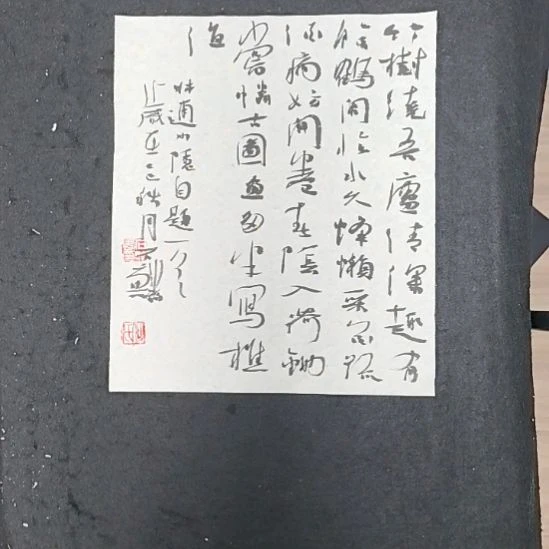 竹樹繞吾廬清深趣有
餘鶴閑臨水久蜂懶采花疏
酒病妨開卷春陰入荷鋤
嘗憐古圖畫多半寫樵
漁
林逋小隱自題一首
歲在乙巳秋月